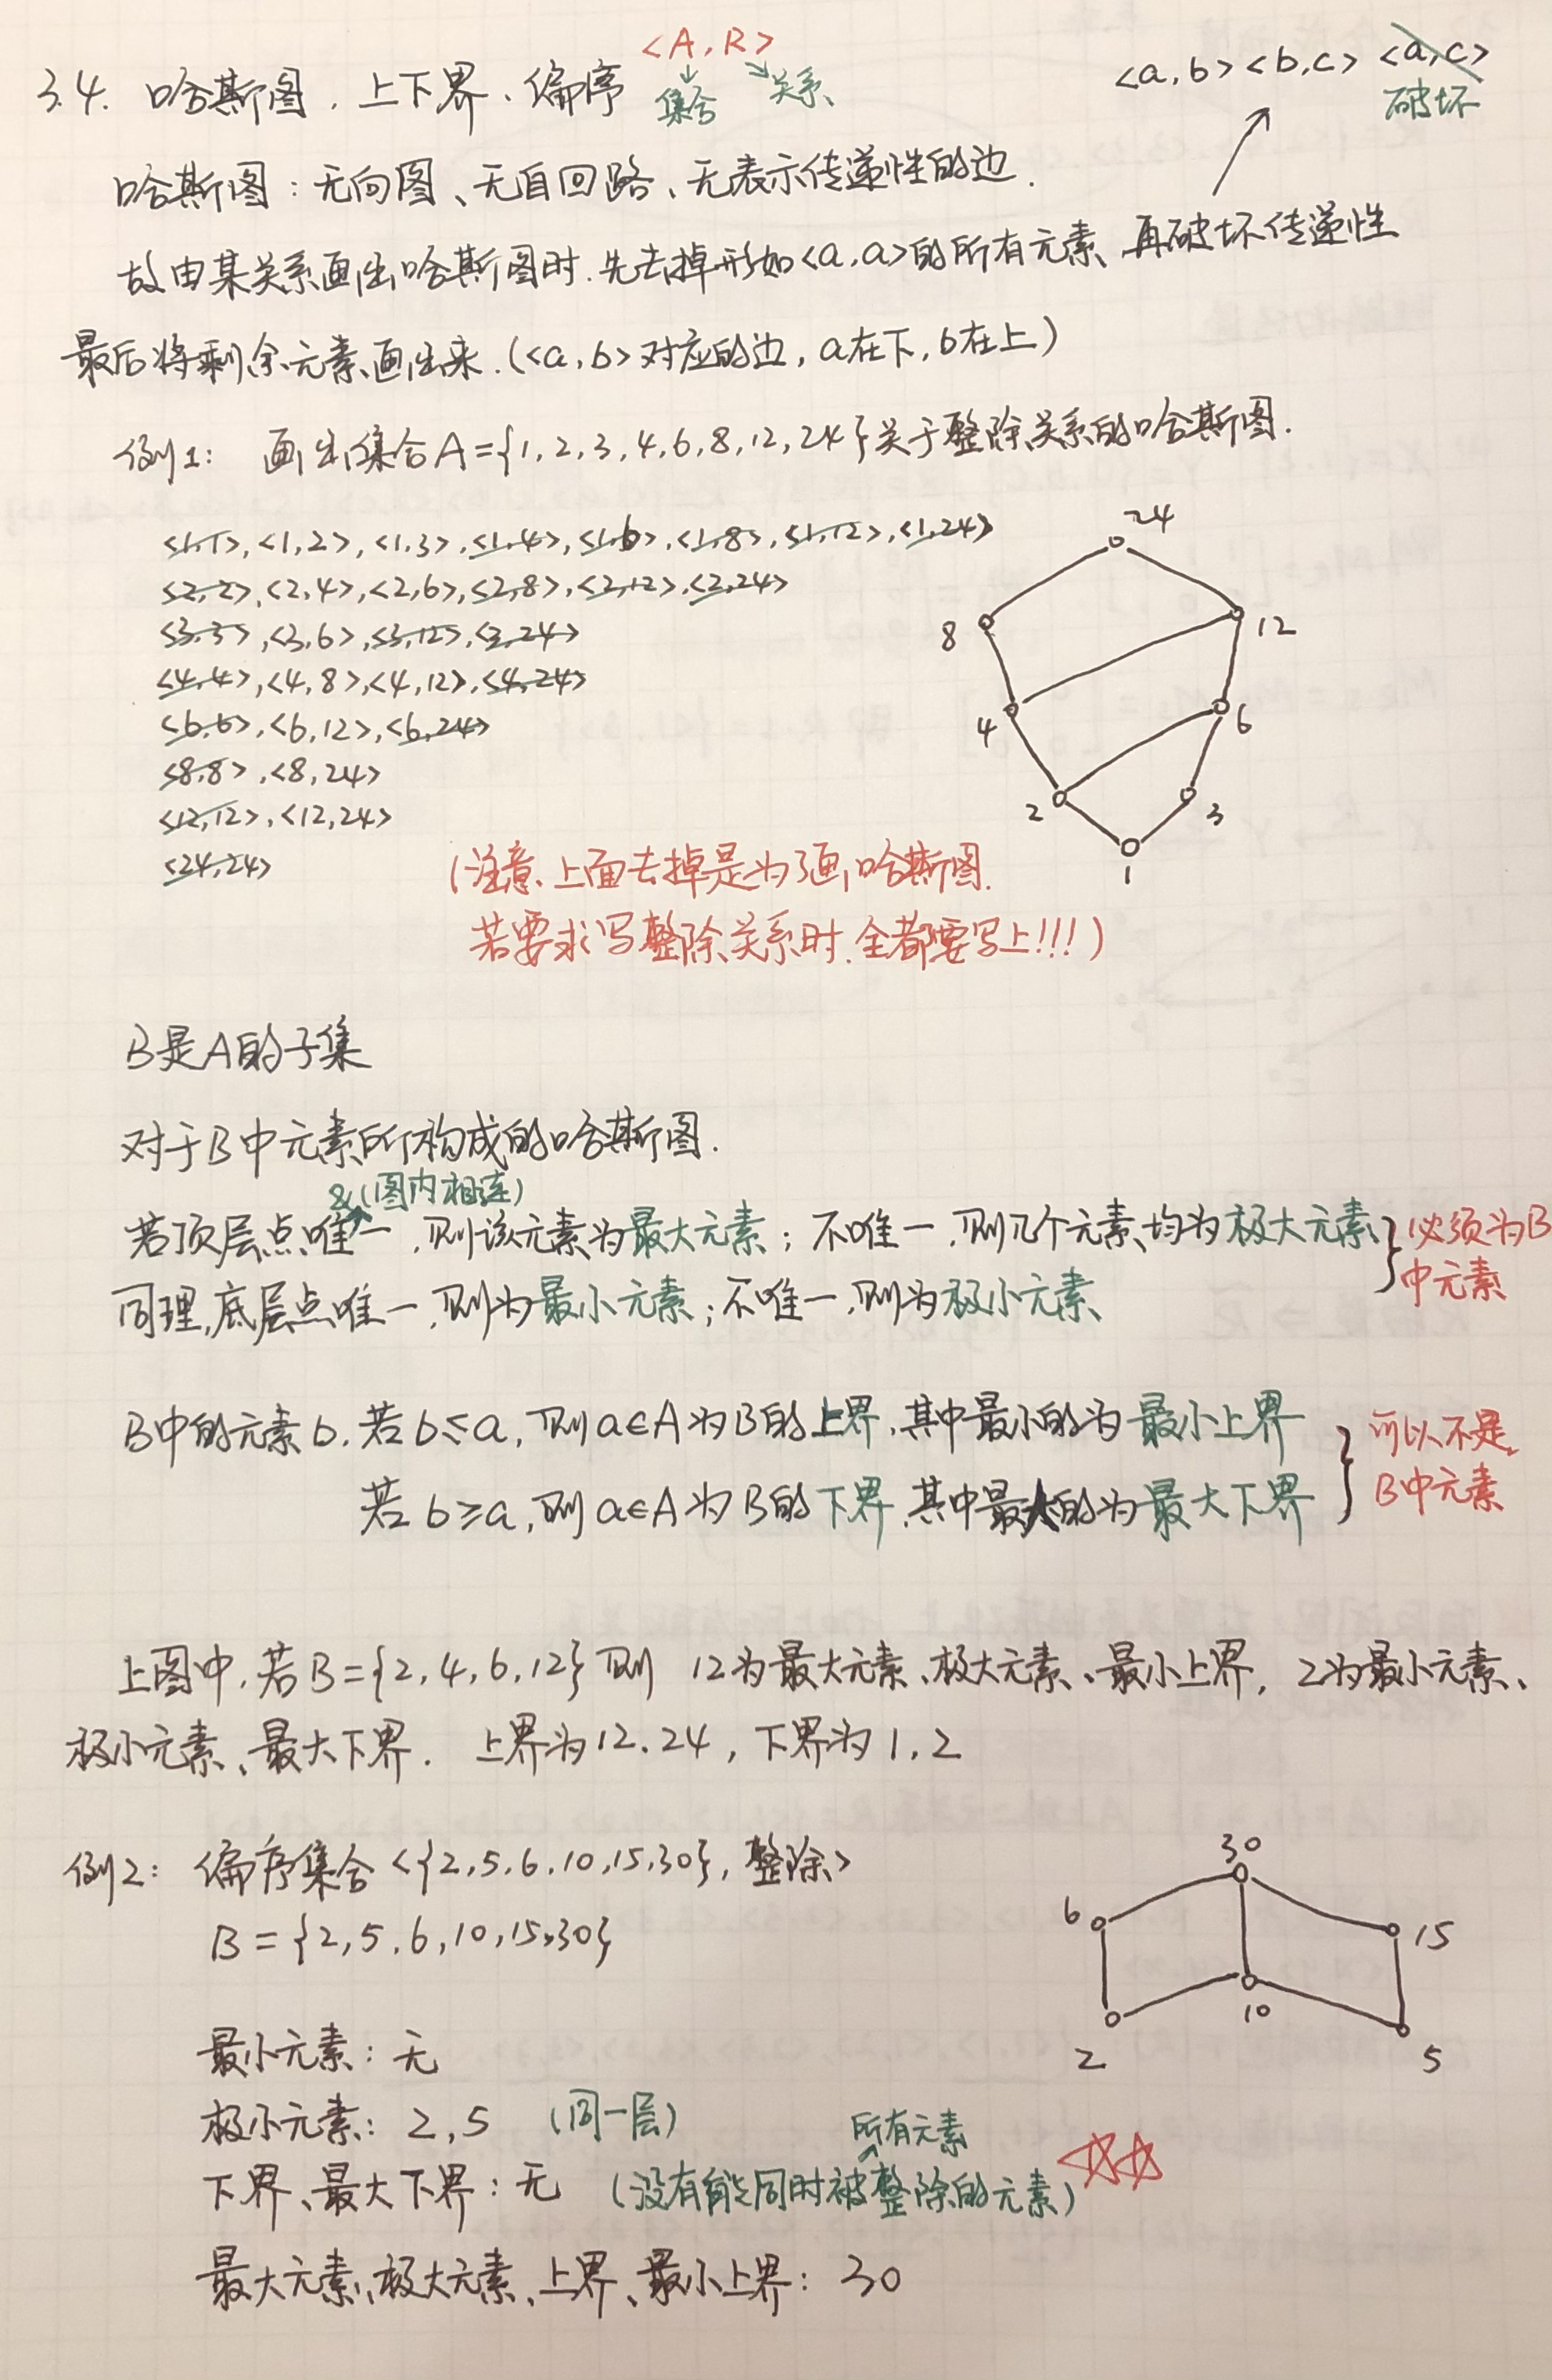 3.4. 哈斯图、上下界、偏序 <A,R>
集合 关系
<a,b> <b,c> <a,c>
破坏
哈斯图：无向图、无自回路、无表示传递性的边.
故由某关系画出哈斯图时.先去掉形如<a,a>的所有元素、再破坏传递性
最后将剩余元素画出来.(<a,b>对应的边,a在下,b在上)
例1: 画出集合A={1,2,3,4,6,8,12,24}关于整除关系的哈斯图.
<1,1>,<1,2>,<1,3>,<1,4>,<1,6>,<1,8>,<1,12>,<1,24>
<2,2>,<2,4>,<2,6>,<2,8>,<2,12>,<2,24>
<3,3>,<3,6>,<3,12>,<3,24>
<4,4>,<4,8>,<4,12>,<4,24>
<6,6>,<6,12>,<6,24>
<8,8>,<8,24>
<12,12>,<12,24>
<24,24>
24
8
12
4
6
2
3
1
(注意、上面去掉是为了画哈斯图.
若要求写整除关系时.全都要写上!!!)
B是A的子集
对于B中元素所构成的哈斯图.
&(图内相连)
若顶层点唯一,则该元素为最大元素；不唯一,则几个元素均为极大元素
同理,底层点唯一,则为最小元素；不唯一,则为极小元素
必须为B
中元素
B中的元素b,若b≤a,则a∈A为B的上界,其中最小的为最小上界
若b≥a,则a∈A为B的下界,其中最大的为最大下界
可以不是
B中元素
上图中,若B={2,4,6,12}则 12为最大元素、极大元素、最小上界, 2为最小元素、
极小元素、最大下界. 上界为12.24,下界为1,2
例2: 偏序集合<{2,5,6,10,15,30},整除>
B={2,5,6,10,15,30}
30
6
15
10
2
5
最小元素：无
极小元素：2,5 (同一层)
所有元素
下界、最大下界：无 (没有能同时被整除的元素)☆☆
最大元素、极大元素、上界、最小上界：30